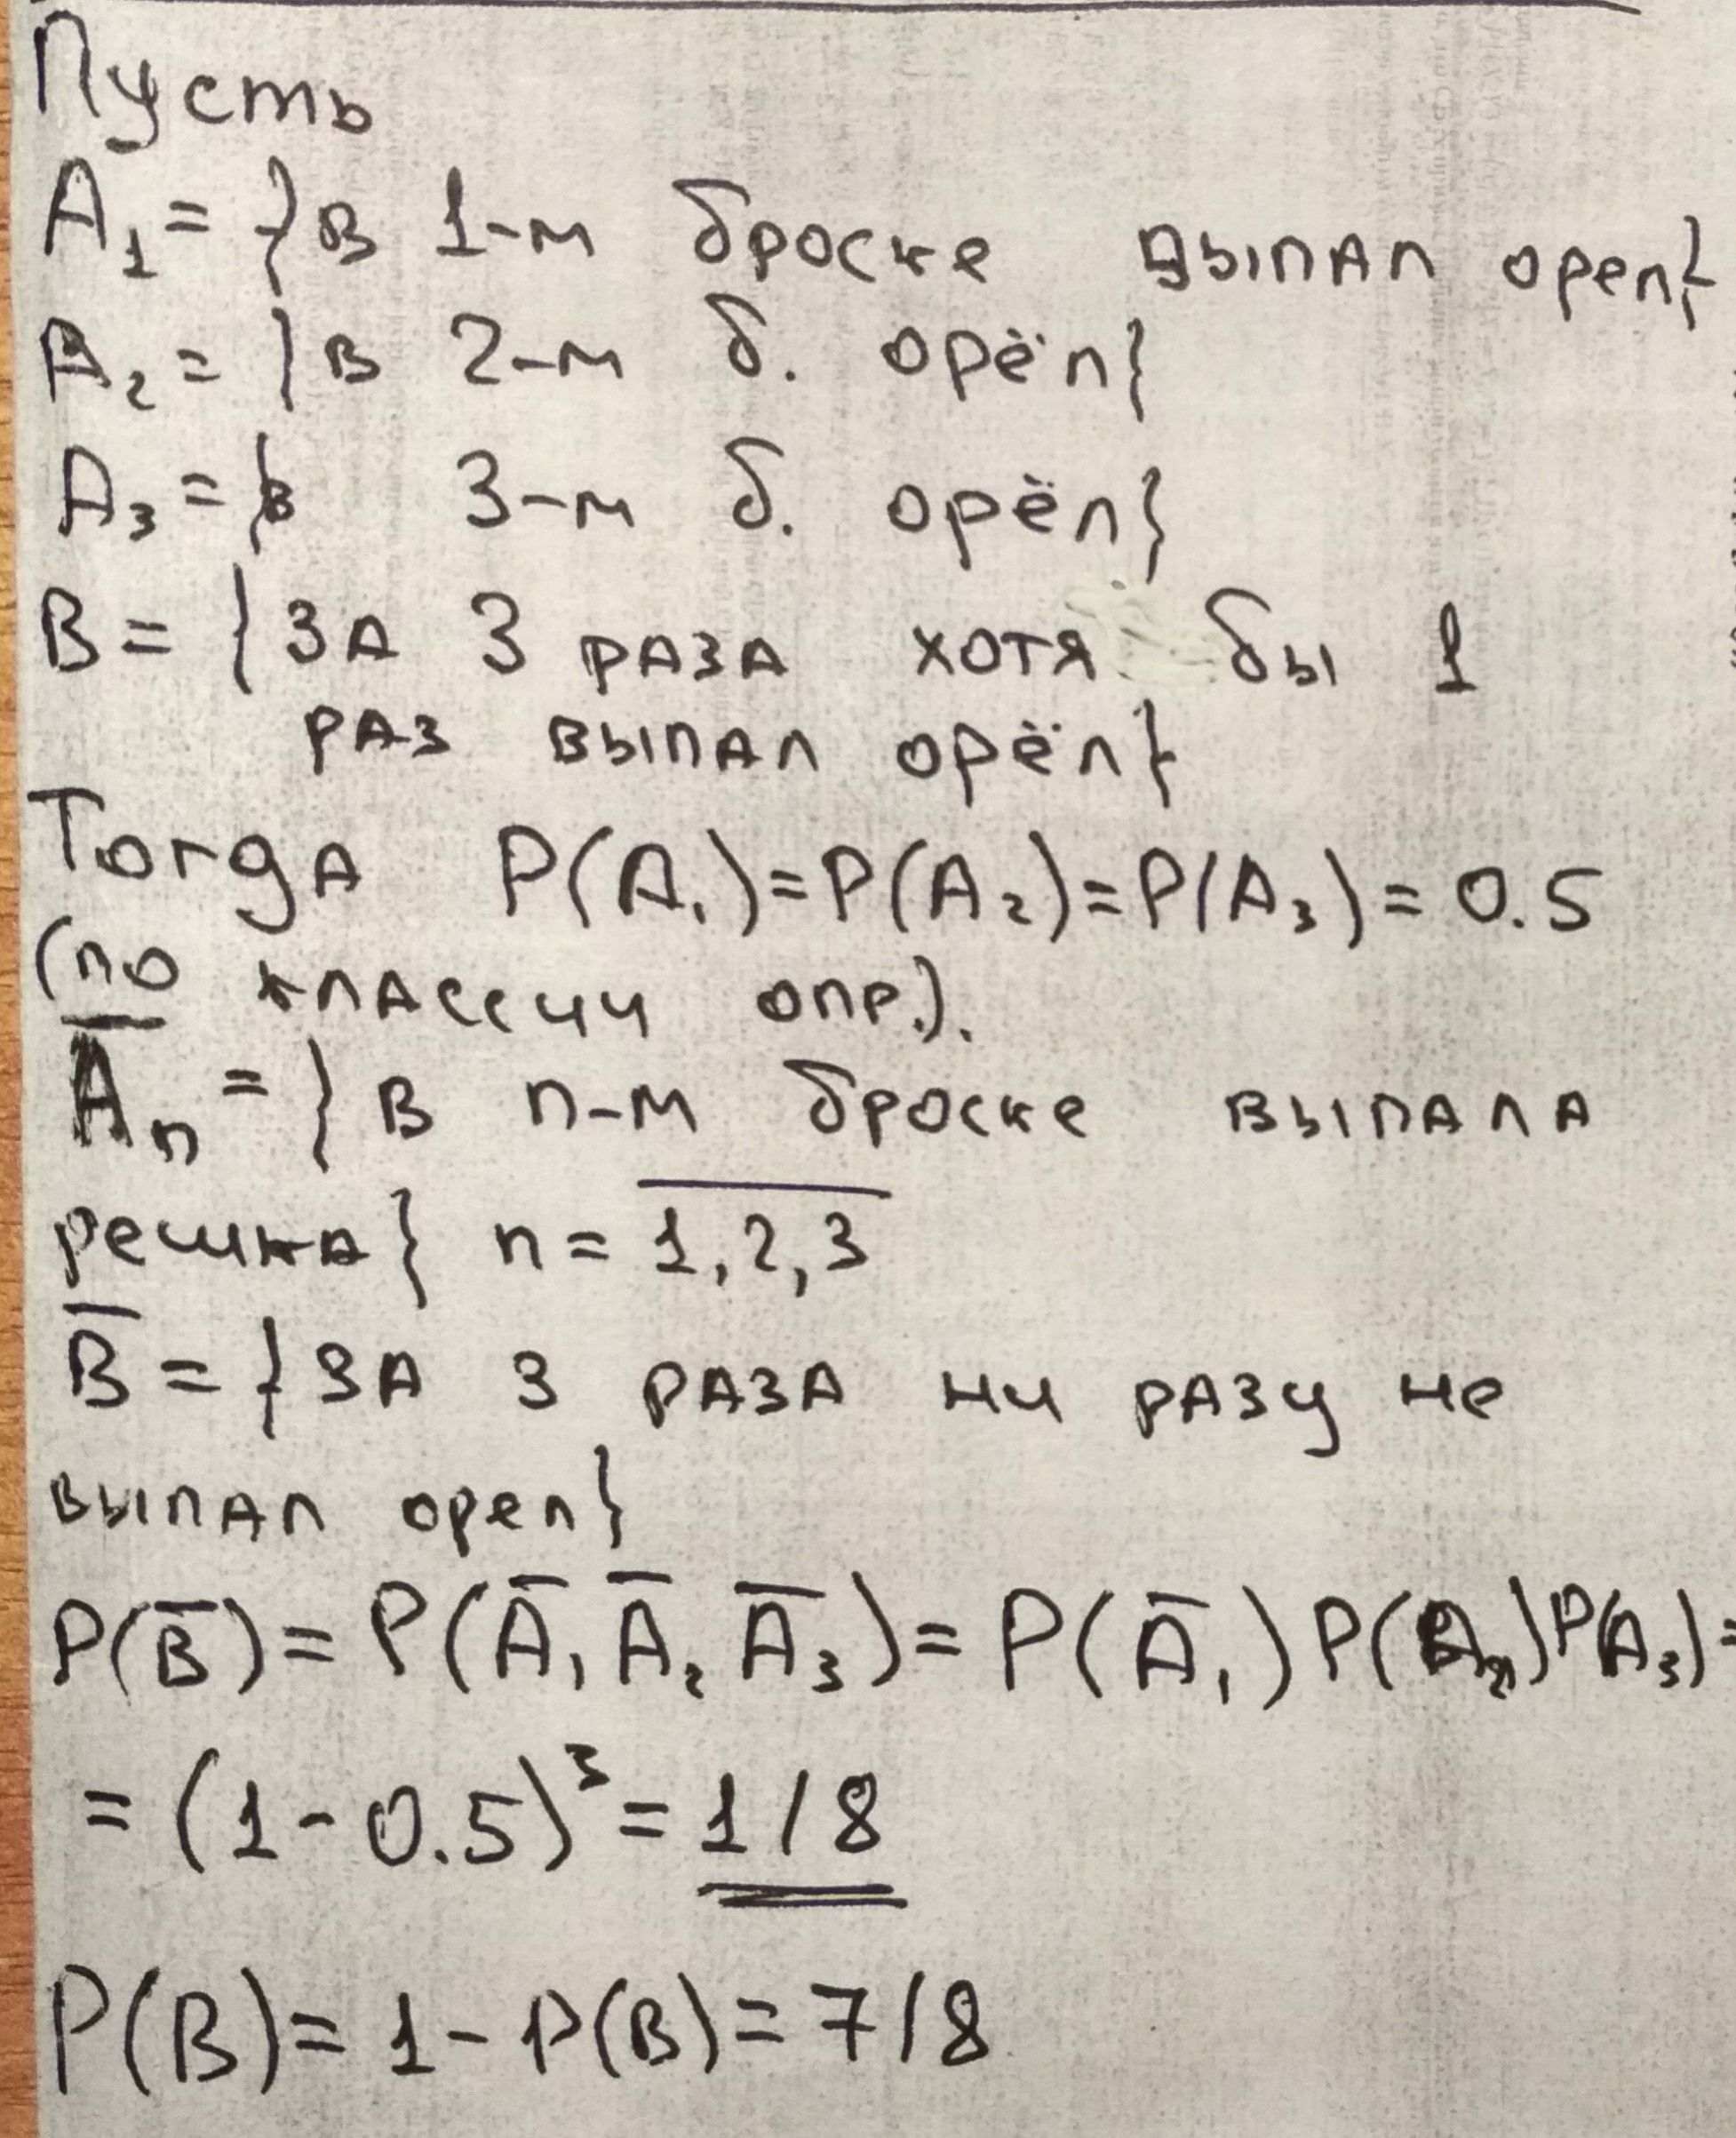 Пусть
A₁ = {в 1-м броске выпал орел}
A₂ = {в 2-м б. орёл}
A₃ = {в 3-м б. орёл}
B = {за 3 раза хотя бы 1
раз выпал орёл}
Тогда P(A₁)=P(A₂)=P(A₃)= 0.5
(по классич опр.).
A̅ₙ = {в n-м броске выпала
решка} n = 1̅,̅2̅,̅3̅
B̅ = {за 3 раза ни разу не
выпал орел}
P(B̅)= P(A̅₁ A̅₂ A̅₃)= P(A̅₁)P(A₂)P(A₃)=
= (1-0.5)³ = 1/8
P(B)= 1 - P(B)= 7/8